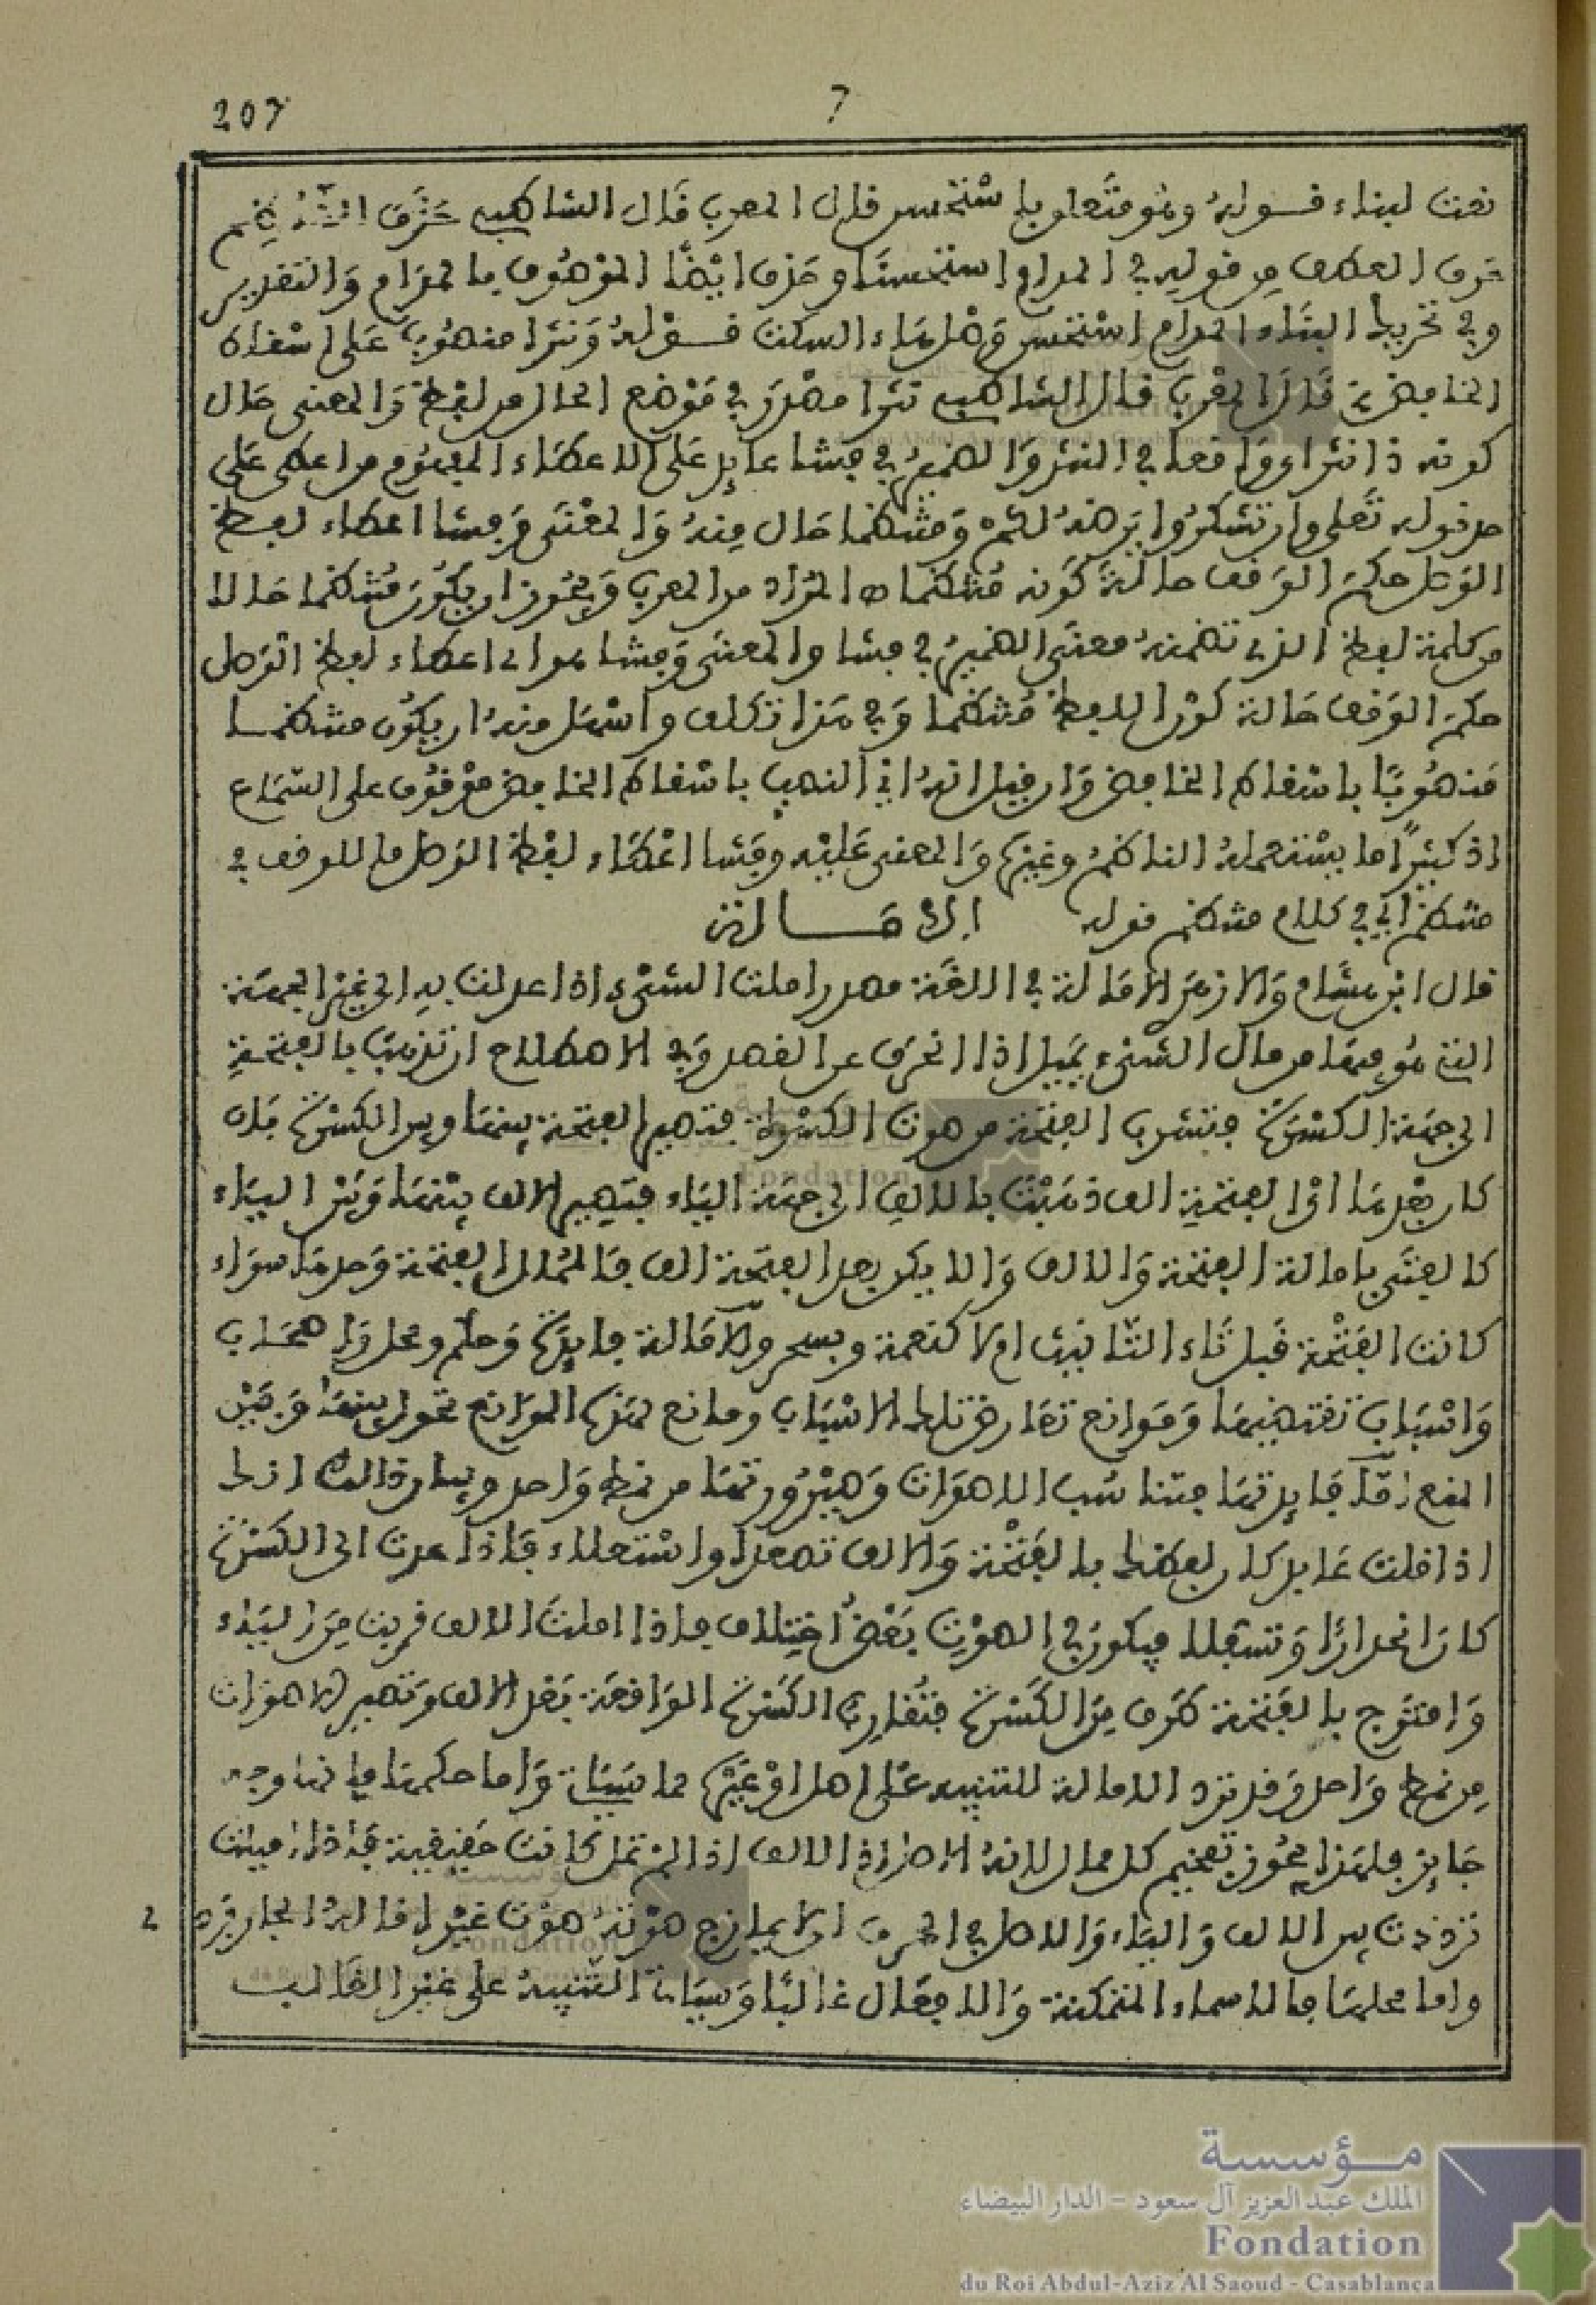 207
7
نعت لبناء قوله وهو متعلق باستحسن قال المعرب قال الشاطبي حذف
حرف العطف من قوله في المدام استحسنا وحذف ايضا الموصوف بالمدام والتقدير
وفي تحريك البناء المدام استحسن وصل بهاء السكت قوله ونثرا منصوب على اسقاط
الخافض قال المعرب قال الشاطبي نثرا مصدر في موضع الحال من لفظ والمعنى حال
كونه ذا نثر او واقعا في النثر والضمير في فشا عايد على الاعطاء المفهوم من اعطى على
حد قوله تعلى وان تشكروا يرضه لكم ومنتظما حال منه والمعنى وفشا اعطاء لفظ
الوصل حكم الوقف حالة كونه منتظما اه المراد من المعرب ويجوز ان يكون منتظما حالا
من كلمة لفظ الذي تضمنه معنى الضمير في فشا والمعنى وفشا هو اي اعطاء لفظ الوصل
حكم الوقف حالة كون اللفظ منتظما وفي هذا تكلف واسهل منه ان يكون منتظما
منصوبا باسقاط الخافض وان قيل انه اي النصب باسقاط الخافض موقوف على السماع
اذ كثيرا ما يستعمله الناظم وغيره والمعنى عليه وفشا اعطاء لفظ الوصل ما للوقف في
منتظم اي في كلام منتظم قوله الامالة
قال ابن هشام والازهر الامالة في اللغة مصدر املت الشيء اذا عدلت به الى غير الجهة
التي هو فيها من مال الشيء يميل اذا انحرف عن القصد وفي الاصطلاح ان تذهب بالفتحة
الى جهة الكسرة فتشرب الفتحة من صوت الكسرة فتصير الفتحة بينها وبين الكسرة فان
كان بعدها اي الفتحة الف ذهبت بالالف الى جهة الياء فتصير الالف بينها وبين الياء
كالفتى بامالة الفتحة والالف والا يكن بعد الفتحة الف فالممال الفتحة وحدها سواء
كانت الفتحة قبل تاء التانيث ام لا كنعمة وبسحر وللامالة فايدة وحكم ومحل واصحاب
واسباب تقتضيها وموانع تعارض تلك الاسباب ومانع لهذه الموانع تحول بينها وبين
المنع اما فايدتها فتناسب الاصوات وصيرورتها من نمط واحد وبيان ذالك انك
اذا قلت عابد كان لفظك بالفتحة والالف تصعدا واستعلاء فاذا عدت الى الكسرة
كان انحدارا وتسفلا فيكون في الصوت بعض اختلاف فاذا املت الالف قربت من الياء
وامتزج بالفتحة طرف من الكسرة فتقارب الكسرة الواقعة بعد الالف وتصير الاصوات
من نمط واحد وقد ترد الامالة للتنبيه على اصل او غيره مما سياتي واما حكمها فانها وجه
جايز فلهذا يجوز تفخيم كل ممال لانه الاصل اذ الالف اذا لم تمل كانت حقيقية فاذا اميلت
ترددت بين الالف والياء والاصل في الحرف الا يمازج صوته صوت غيره قاله الجاربردي
واما محلها فالاسماء المتمكنة والافعال غالبا وسياتي التنبيه على غير الغالب
مؤسسة
الملك عبد العزيز آل سعود - الدار البيضاء
Fondation
du Roi Abdul-Aziz Al Saoud - Casablanca